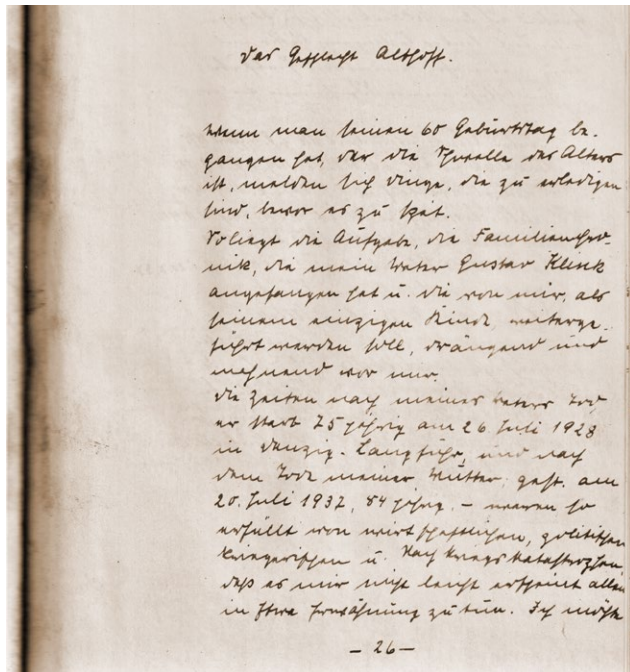 Das Geschlecht Althoff.
Wenn man seinen 60 Geburtstag be-
gangen hat, der die Schwelle des Alters
ist, melden sich Dinge, die zu erledigen
sind, bevor es zu spät.
So liegt die Aufgabe, die Familienchro-
nik, die mein Vater Gustav Klink
angefangen hat u. die von mir, als
seinem einzigen Kinde, weiterge-
führt werden soll, drängend und
mahnend vor mir.
Die Zeiten nach meines Vaters Tod
er starb 75 jährig am 26 Juli 1928
in Danzig-Langfuhr, und nach
dem Tode meiner Mutter, gest. am
20. Juli 1937, 84 jährig. – waren so
erfüllt von wirtschaftlichen, politischen
kriegerischen u. Nachkriegskatastrophen,
daß es mir nicht leicht erscheint allem
in Erwähnung zu tun. Ich möchte
– 26 –